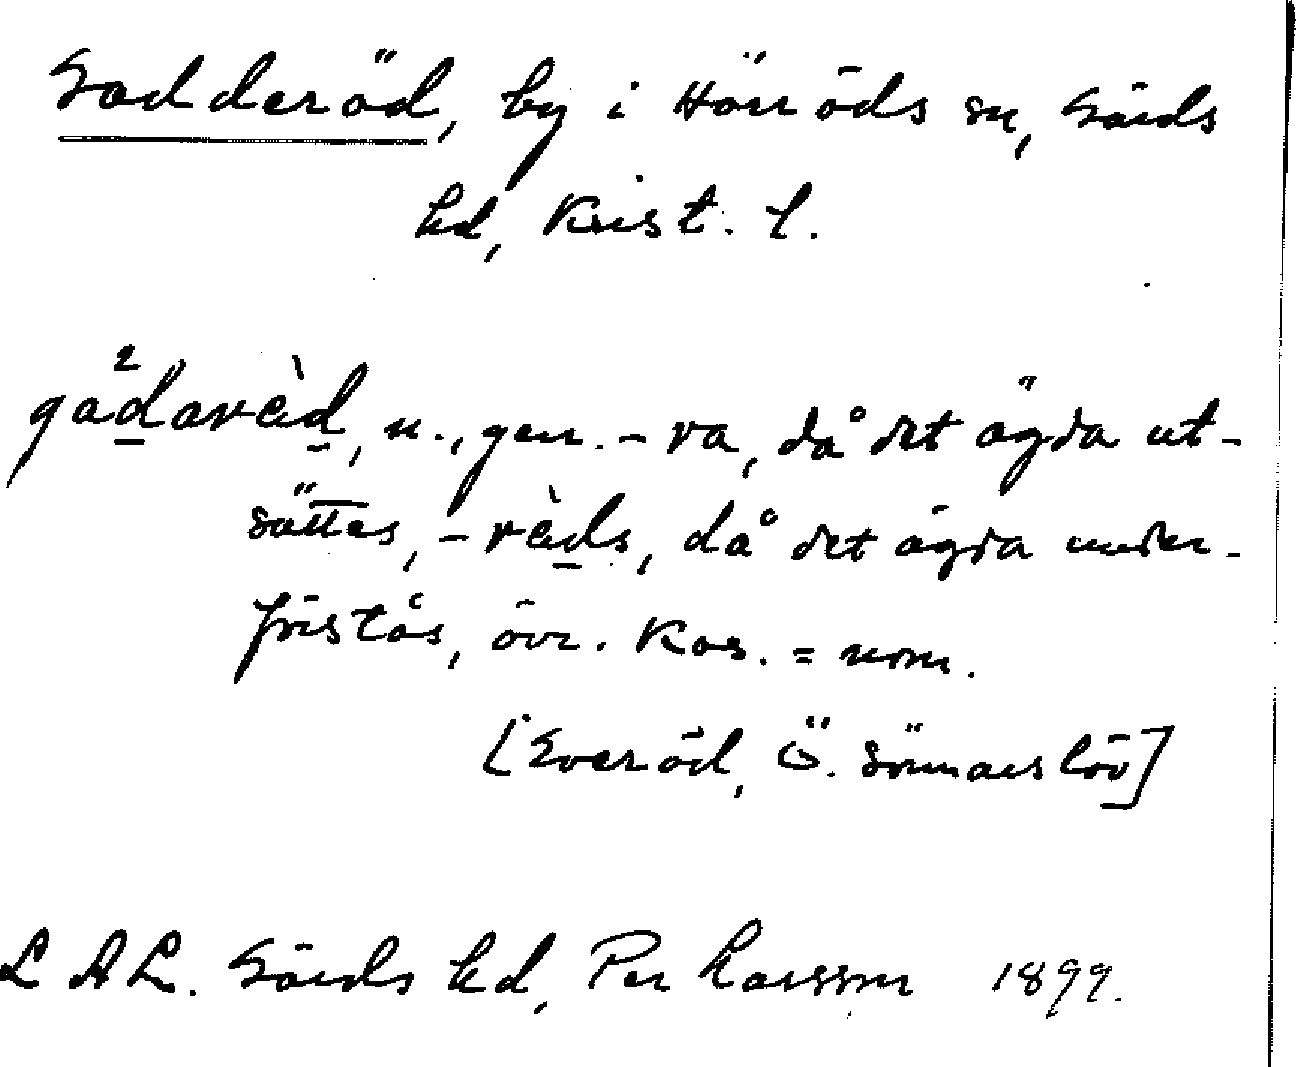 Gadderöd, by i Hörröds sn, Gärds
hd, Krist. l.
gad²aràd, n., gen. -ra, då det ägda ut-
sättes, -ràds, då det ägda under-
förstås, övr. kas. = nom.
[Everöd, Ö. Sönnarslöv]
L A L. Gärds hd, Per Larsson 1899.